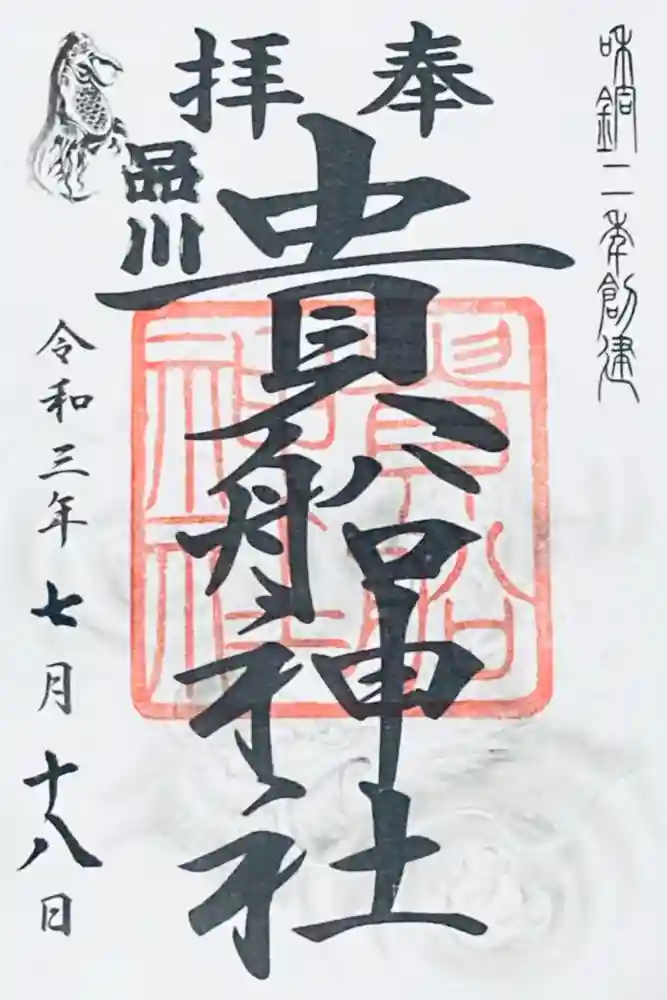 和銅二年創建
奉拝
品川
貴船神社
貴船
神社
令和三年七月十八日